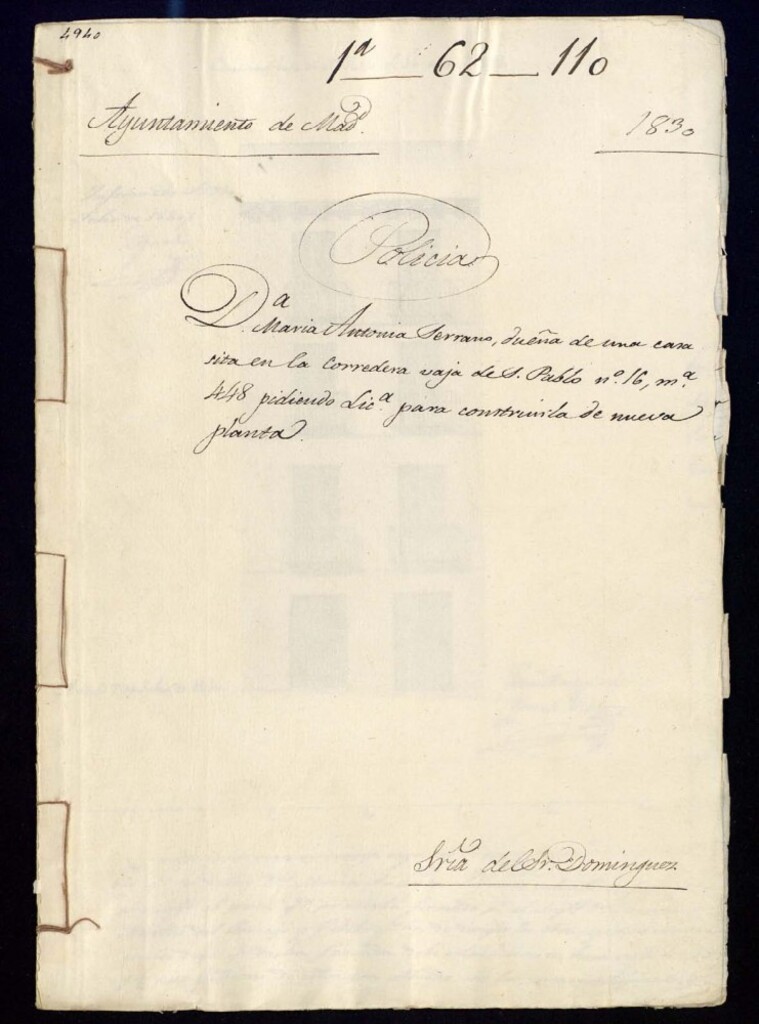 4940
1ª 62 110
Ayuntamiento de Madd.
1830
Policia
D.ª Maria Antonia Serrano, dueña de una casa
sita en la Corredera vaja de S. Pablo nº. 16, m.ª
448 pidiendo Lic.ª para construirla de nueva
planta.
Sría del Sr. Dominguez